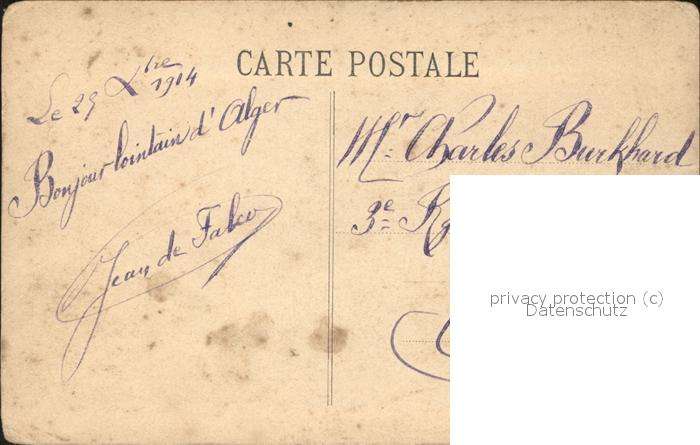 CARTE POSTALE
Le 29 Xbre 1914
Bonjour lointain d'Alger
Jean de Falco
Mr. Charles Burkhard
3e
privacy protection (c)
Datenschutz